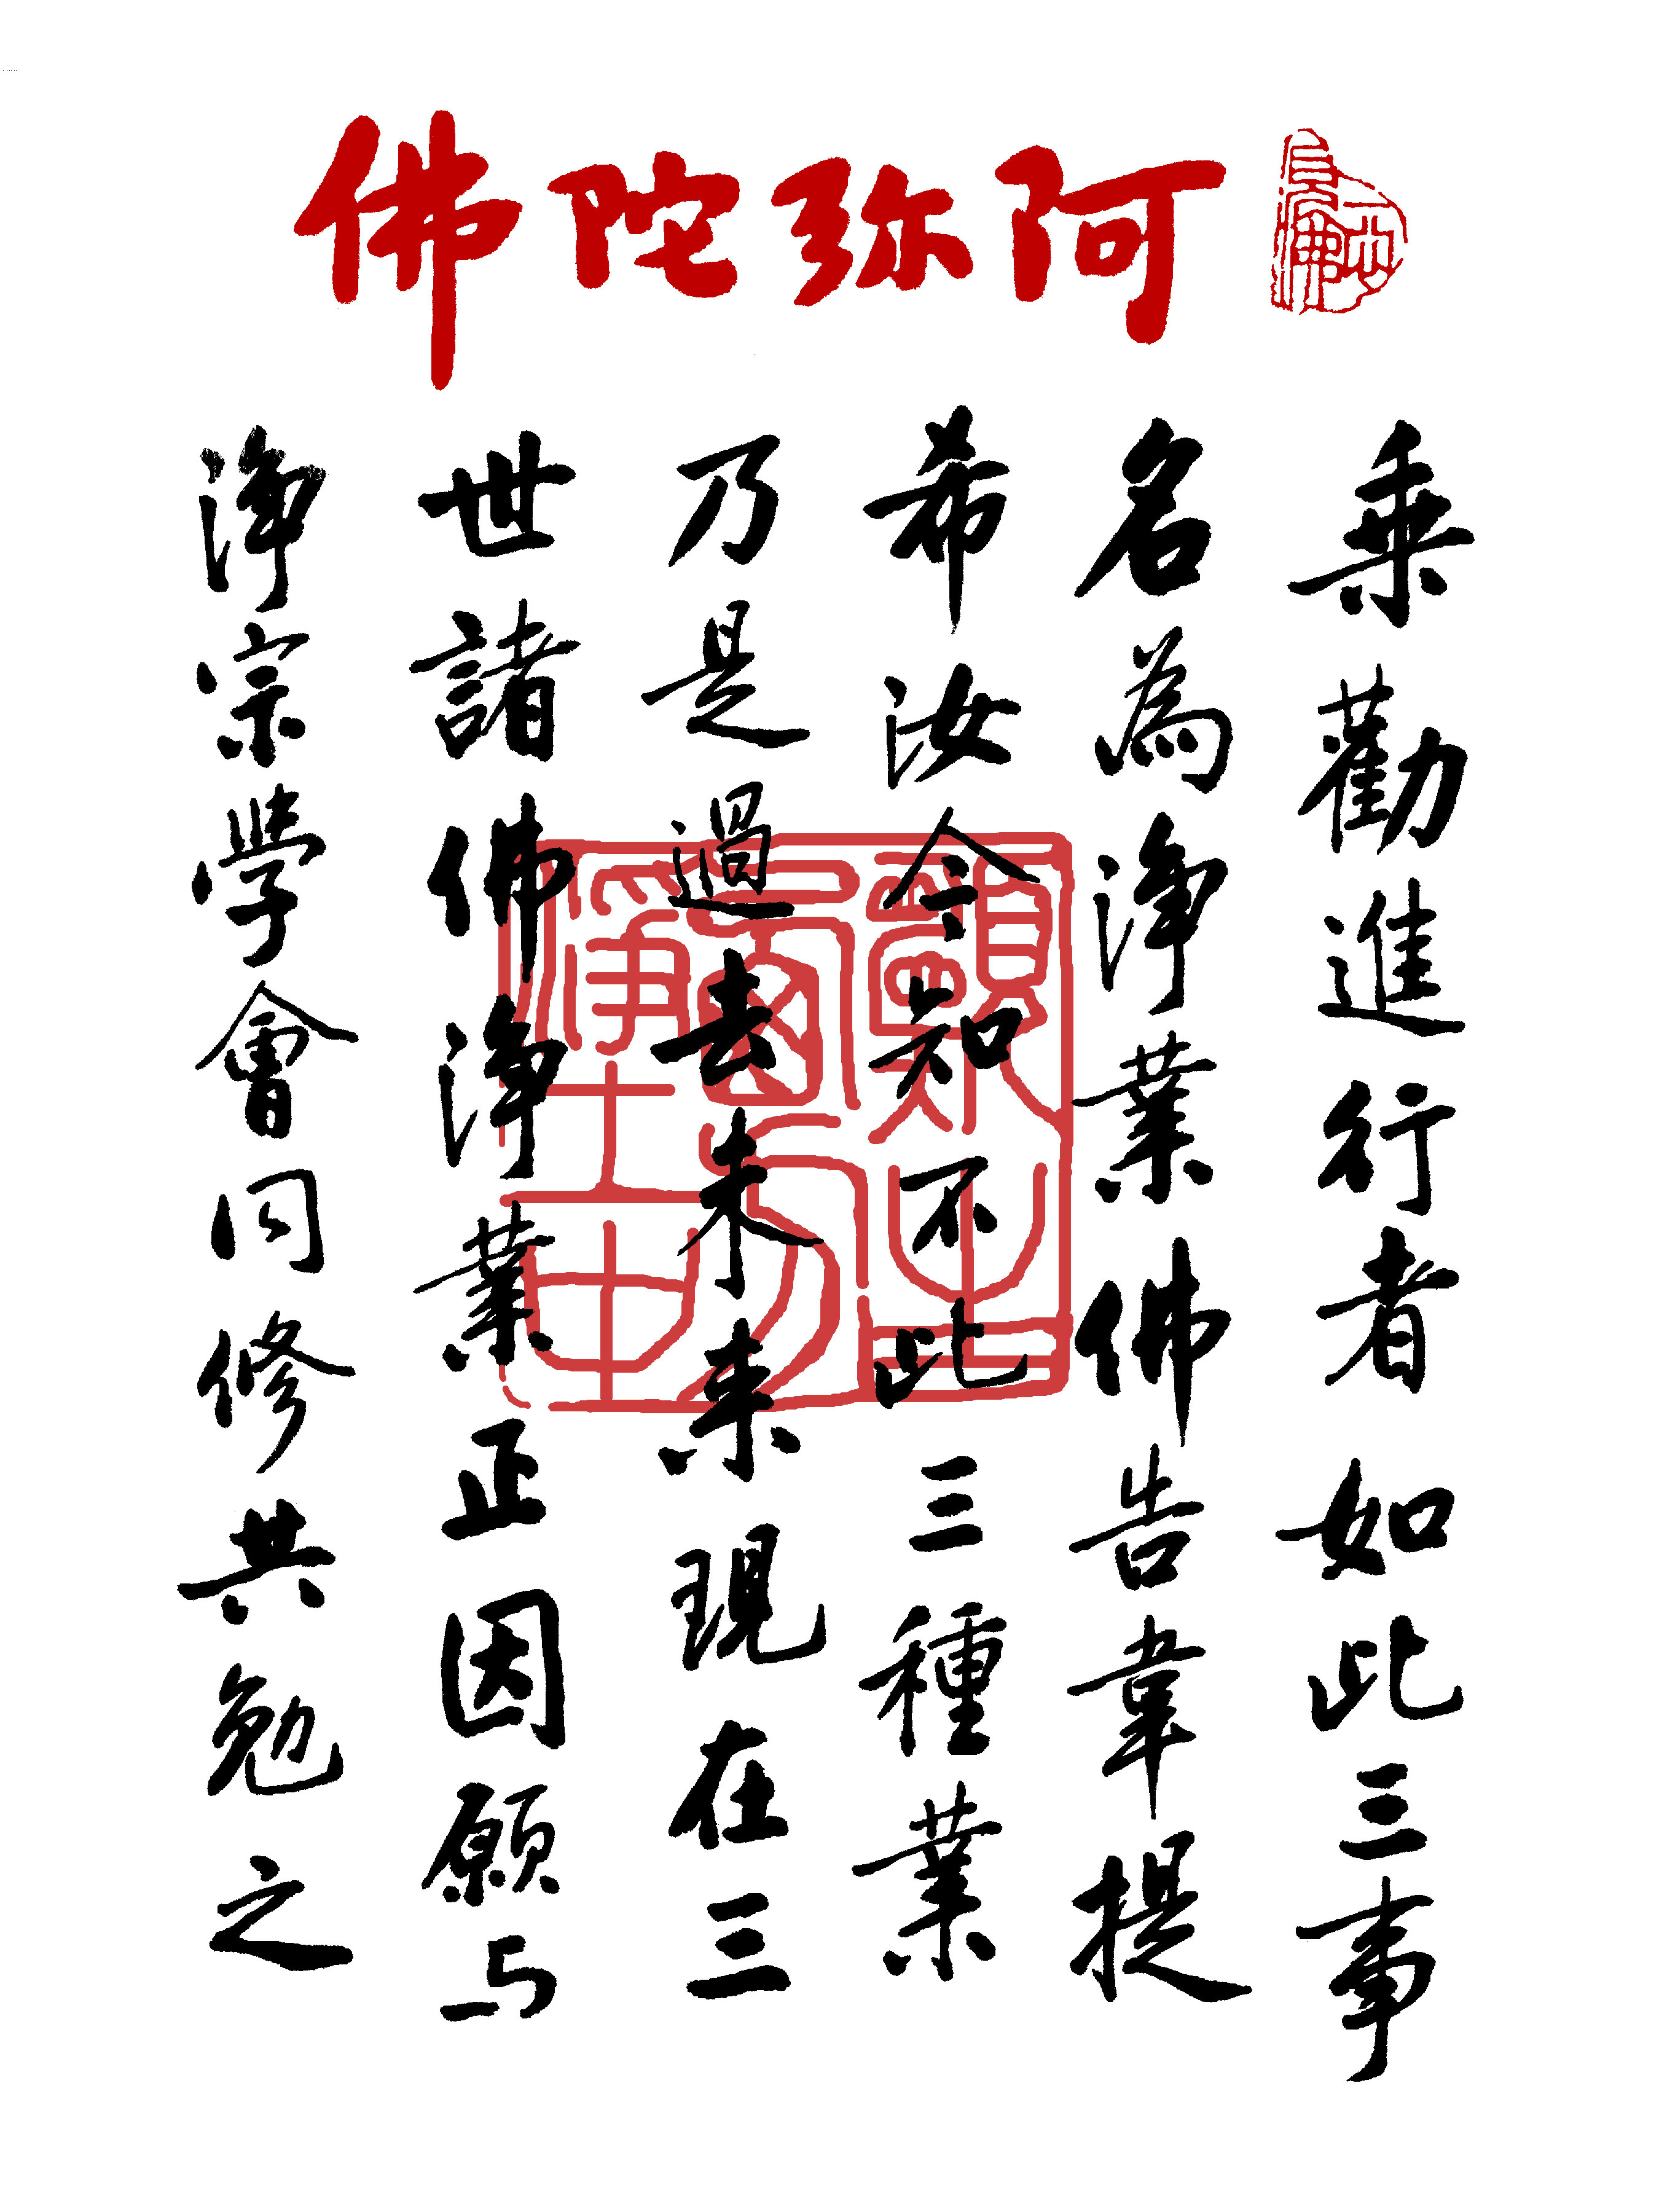 阿弥陀佛
乘勸進行者如此三事
名為淨業佛告韋提
希汝今知不此三種業
乃是過去未來現在三
世諸佛淨業正因願与
淨宗學會同修共勉之
願生西方淨土中